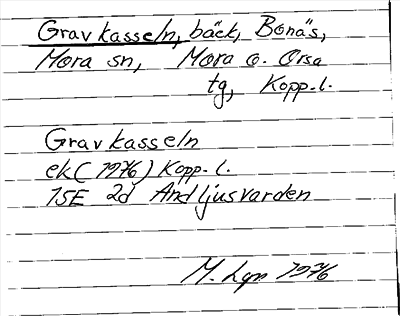 Gravkasseln, bäck, Bonäs,
Mora sn, Mora o. Orsa
tg, Kopp.l.
Gravkasseln
ek (1976) Kopp.l.
15E 2d Andljusvarden
M. Lgn 1976